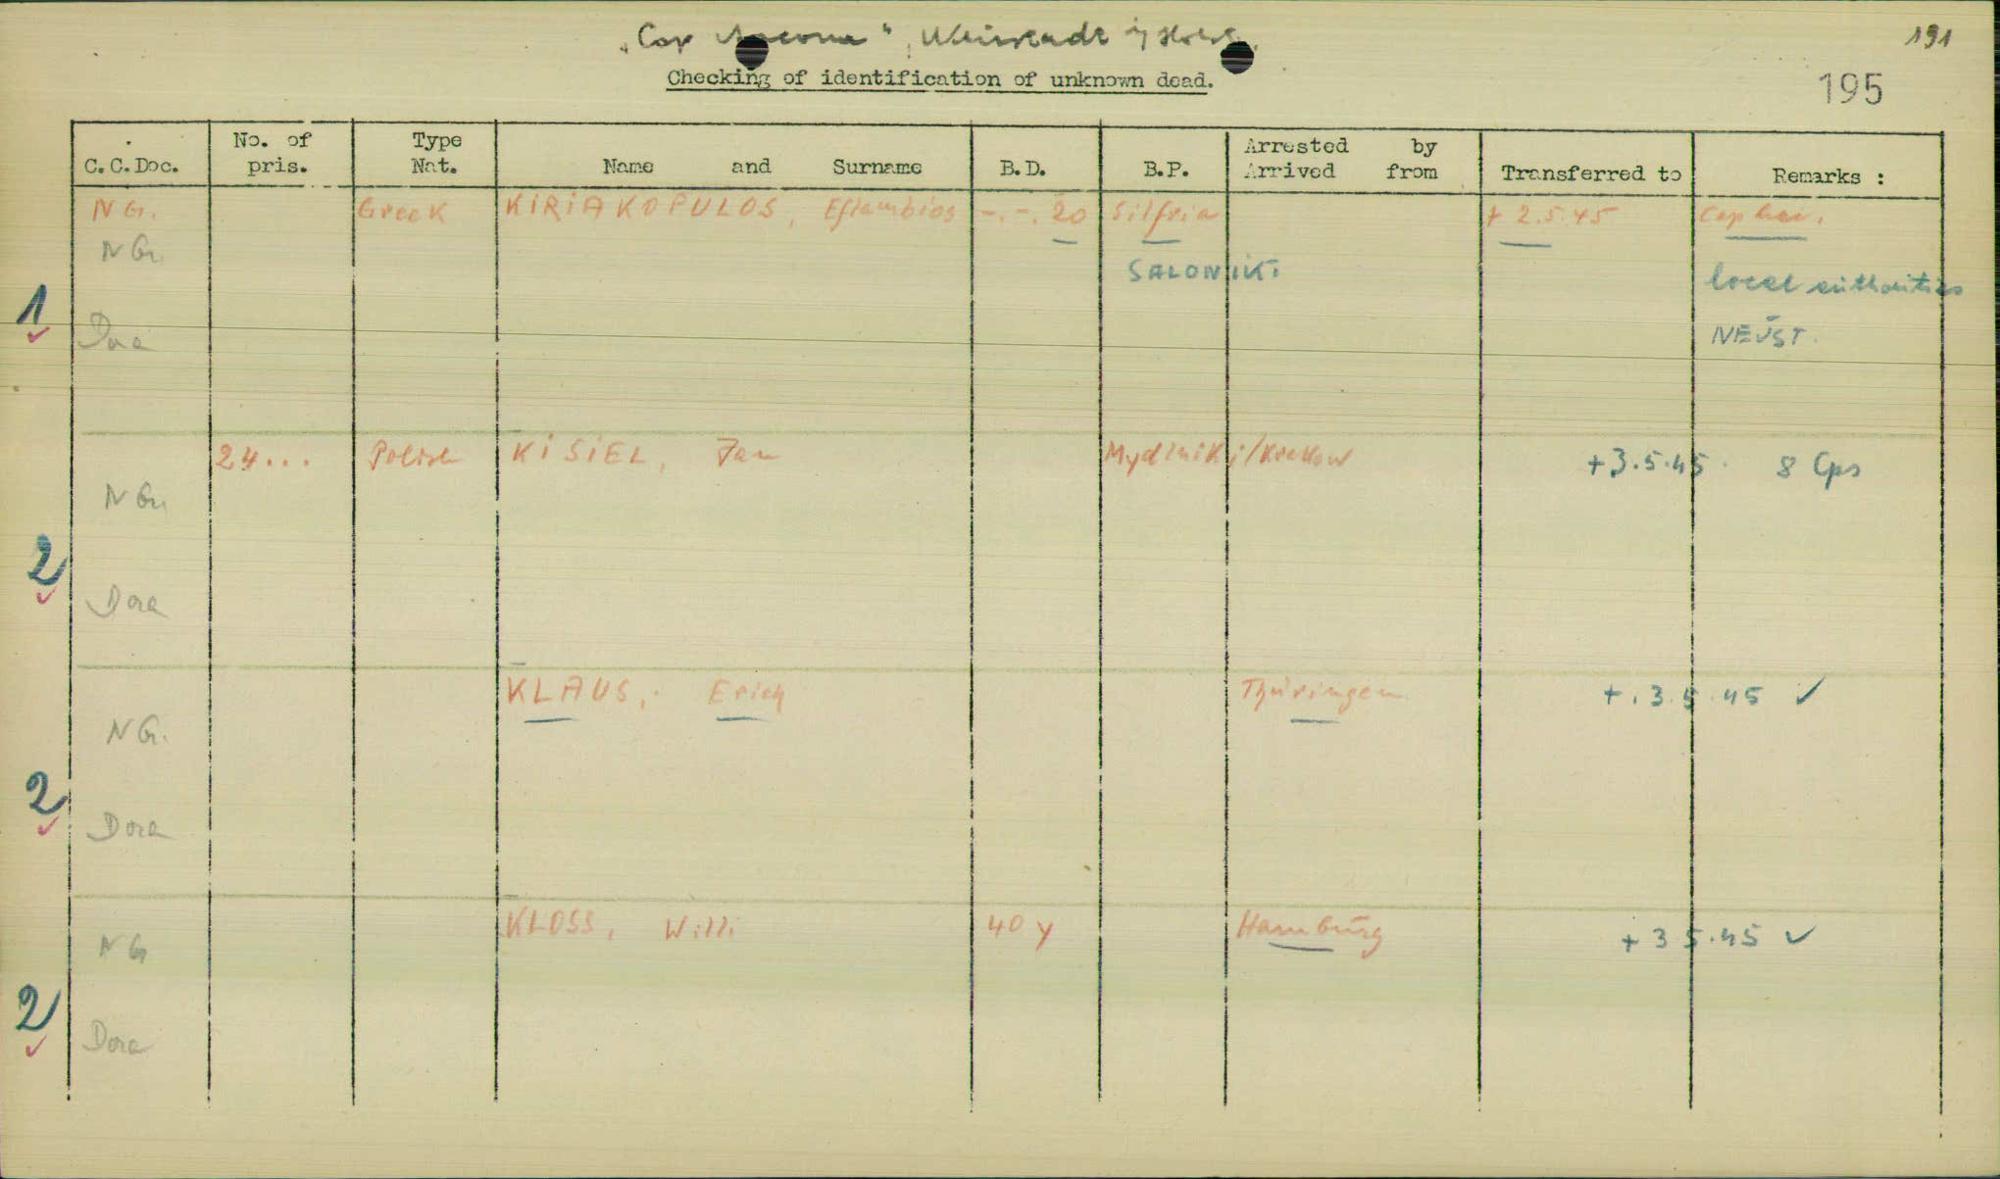 "Cap Arcona", Neustadt i/Holst.
191
Checking of identification of unknown dead.
195
C.C.Doc. No. of pris. Type Nat. Name and Surname B.D. B.P. Arrested by Arrived from Transferred to Remarks :
NG. Greek KIRIAKOPULOS, -.-. 20 Silfria + 2.5.45
N Gr.
SALONIKi
local authorities
1
Dora
NEUST.
24... Polish KiSiEL, Jan Mydlniki/Krakow +3.5.45. 8 Cps
N Gr.
2
Dora
KLAUS, Erich Thüringen +.3.5.45 ✓
N G.
2
Dora
KLOSS, Willi 40 y Hamburg + 3 5.45 ✓
N G
2
Dora